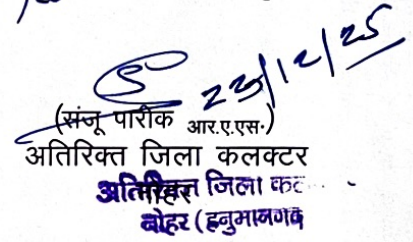 23/12/25
(संजू पारीक आर.ए.एस.)
अतिरिक्त जिला कलक्टर
नोहर
अतिरिक्त जिला कट
नोहर (हनुमानगढ